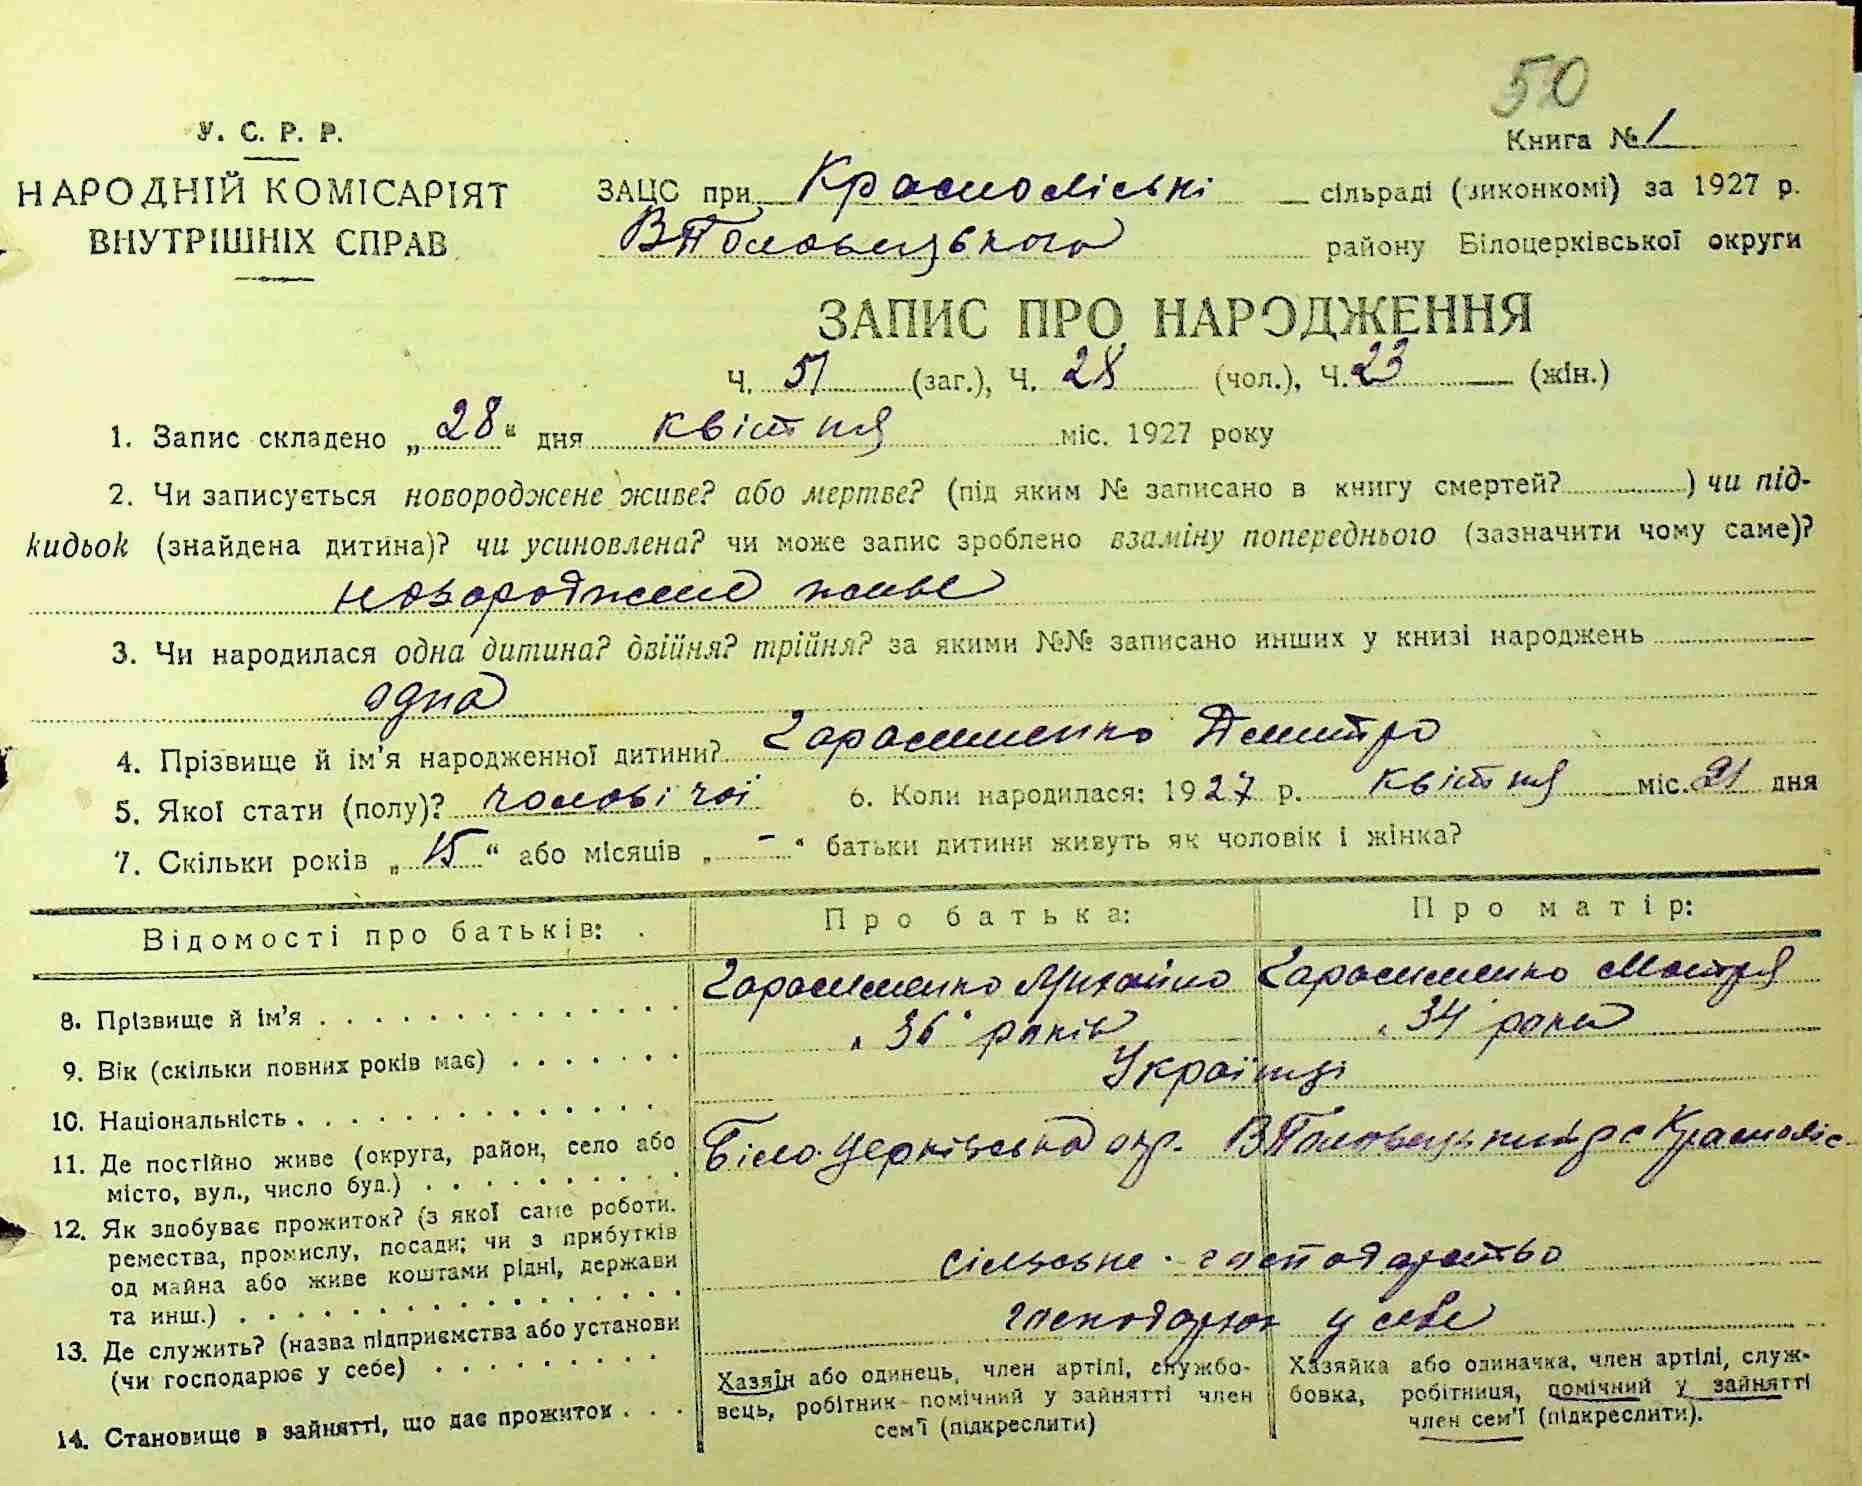 50
У. С. Р. Р.
Книга № 1
НАРОДНІЙ КОМІСАРІЯТ
ВНУТРІШНІХ СПРАВ
ЗАЦС при Красноліські сільраді (виконкомі) за 1927 р.
ВПоловецького району Білоцерківської округи
ЗАПИС ПРО НАРОДЖЕННЯ
Ч. 51 (заг.), Ч. 28 (чол.), Ч. 23 (жін.)
1. Запис складено „28“ дня квітня міс. 1927 року
2. Чи записується новороджене живе? або мертве? (під яким № записано в книгу смертей? ) чи під-
кидьок (знайдена дитина)? чи усиновлена? чи може запис зроблено взаміну попереднього (зазначити чому саме)?
новороджене живе
3. Чи народилася одна дитина? двійня? трійня? за якими №№ записано инших у книзі народжень
одна
4. Прізвище й ім’я народженної дитини? Гарасименко Дмитро
5. Якої стати (полу)? чоловічої 6. Коли народилася: 1927 р. квітня міс. 21 дня
7. Скільки років „15“ або місяців „-“ батьки дитини живуть як чоловік і жінка?
Відомості про батьків: Про батька: Про матір:
8. Прізвище й ім’я Гарасименко Михайло Гарасименко Мотря
9. Вік (скільки повних років має) 36 років 34 роки
10. Національність Українці
11. Де постійно живе (округа, район, село або
місто, вул., число буд.) Біло-Церківська окр. ВПоловецький р с Красноліс
12. Як здобуває прожиток? (з якої саме роботи,
ремества, промислу, посади; чи з прибутків
од майна або живе коштами рідні, держави
та инш.) сільське-господарство
13. Де служить? (назва підприємства або установи
(чи господарює у себе) господарює у себе
14. Становище в зайнятті, що дає прожиток
Хазяїн або одинець, член артілі, службо-
вець, робітник помічний у зайнятті член
сем’ї (підкреслити)
Хазяйка або одиначка, член артілі, служ-
бовка, робітниця, помічний у зайнятті
член сем’ї (підкреслити).